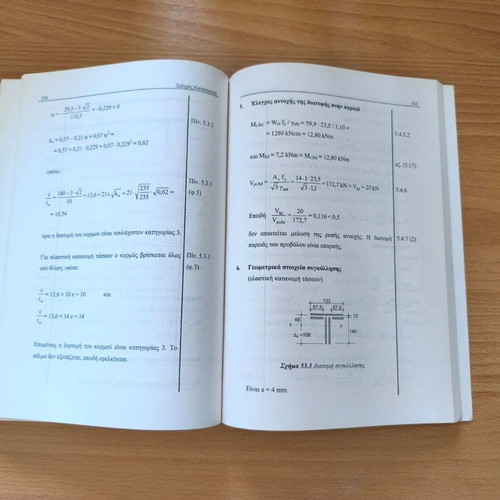 350
Σιδηρές Κατασκευές
ψ = - (29,5 - 3·√2) / 110,5 = -0,229 < 0
Πίν. 5.3.1
kσ = 0,57 - 0,21 ψ + 0,07 ψ² =
= 0,57 + 0,21 · 0,229 + 0,07 · 0,229² = 0,62
οπότε:
c / tw = (140 - 3·√2) / 10 = 13,6 < 21ε √kσ = 21 · √(235/235) · √0,62 =
Πίν. 5.3.1
(φ.3)
= 16,54
άρα η διατομή του κορμού είναι τουλάχιστον κατηγορίας 3.
Για πλαστική κατανομή τάσεων ο κορμός βρίσκεται όλος
Πίν. 5.3.1
υπό θλίψη, οπότε:
(φ.3)
c / tw = 13,6 > 10 ε = 10 και
c / tw = 13,6 < 14 ε = 14
Επομένως η διατομή του κορμού είναι κατηγορίας 3. Το
πέλμα δεν εξετάζεται, επειδή εφελκύεται.
351
5. Έλεγχος αντοχής της διατομής στην παρειά
Mc,Rd = Wel fy / γM0 = 59,9 · 23,5 / 1,10 =
= 1280 kNcm = 12,80 kNm
5.4.5.2
και MSd = 7,2 kNm < Mc,Rd = 12,80 kNm
εξ. (5.17)
Vpl,Rd = Av fy / √3 γM0 = 14·1·23,5 / √3 ·1,1 = 172,7 kN > VSd = 20 kN
5.4.6
Επειδή VSd / Vpl,Rd = 20 / 172,7 = 0,116 < 0,5
δεν απαιτείται μείωση της ροπής αντοχής. Η διατομή
5.4.7 (2)
παρειάς του προβόλου είναι επαρκής.
6. Γεωμετρικά στοιχεία συγκόλλησης
(ελαστική κατανομή τάσεων)
133
57,5 57,5
48
12
y
140
Σχήμα 53.3 Διατομή συγκόλλησης
Είναι a = 4 mm